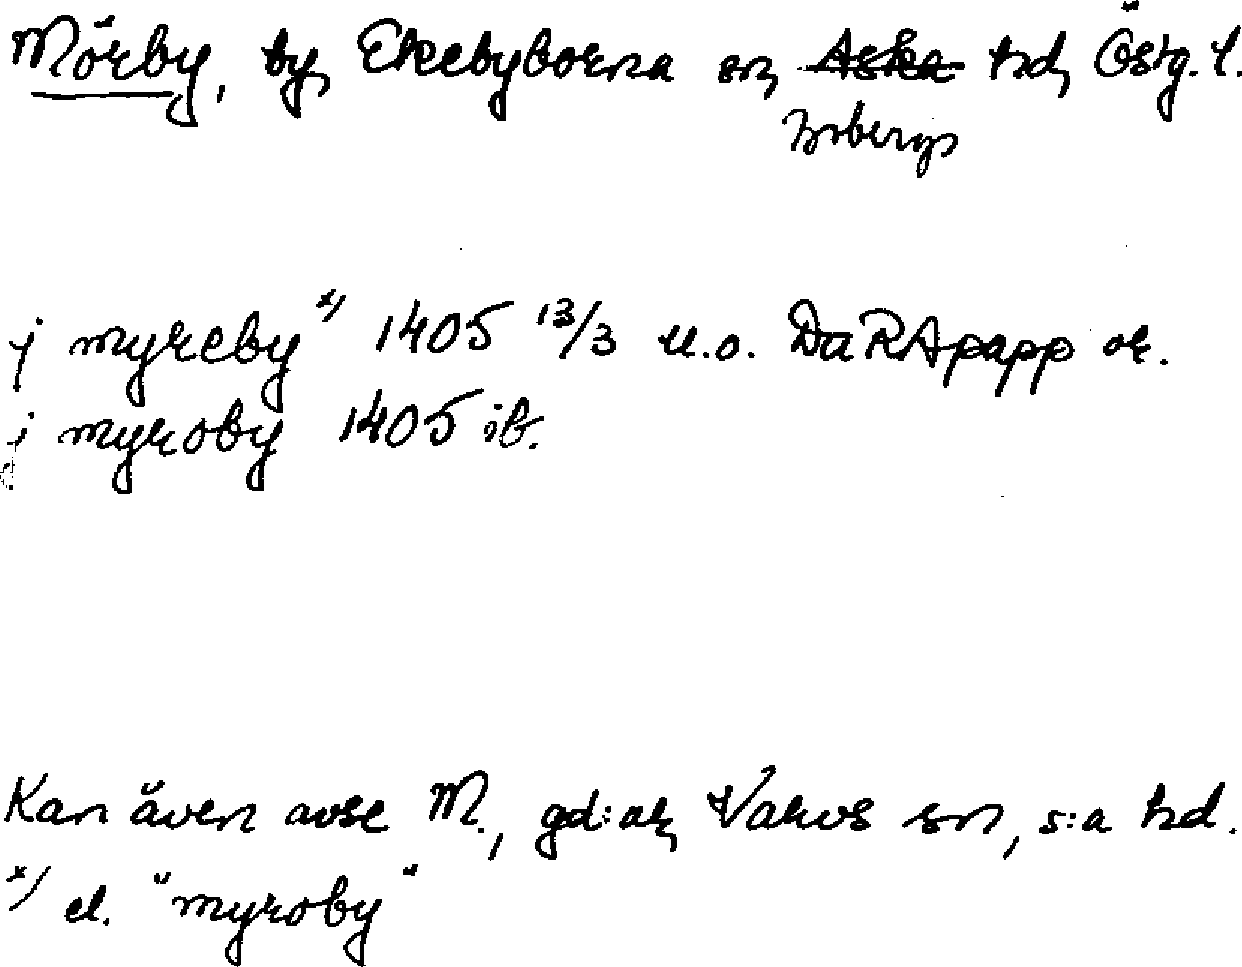 Mörby, by, Ekebyborna sn, Aska hd, Östg. l.
Bobergs
j myreby x) 1405 13/3 u.o. Da RApapp or.
j myroby 1405 ib.
Kan även avse M., gd:ar, Varvs sn, s:a hd.
x) el. "myroby"